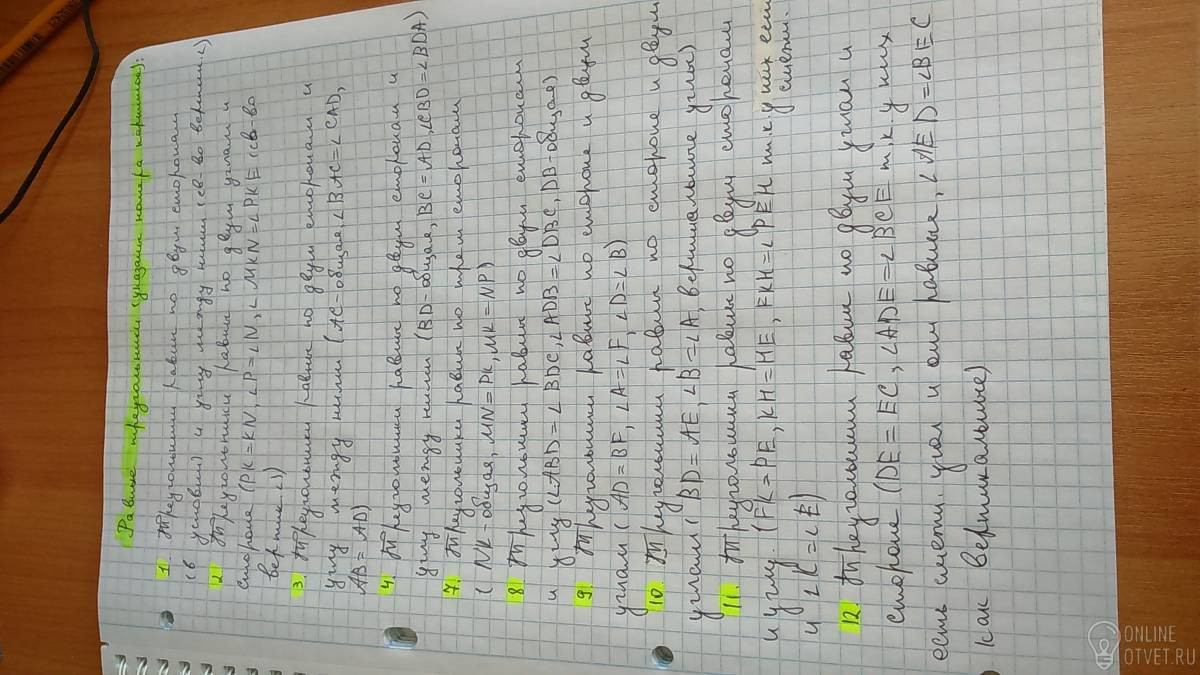 Равные треугольники (указаны номера картинок):
1. Треугольники равны по двум сторонам
(в условии) и углу между ними (св-во вертик. ∠)
2 Треугольники равны по двум углам и
стороне (PK = KN, ∠P = ∠N, ∠MKN = ∠PKE (св-во
вертик ∠)
3. Треугольники равные по двум сторонам и
углу между ними (AC - общая, ∠BAC = ∠CAD,
AB = AD)
4. Треугольники равны по двум сторонам и
углу между ними (BD - общая, BC = AD, ∠CBD = ∠BDA)
7. Треугольники равны по трем сторонам
(NK - общая, MN = PK, MK = NP)
8 Треугольники равны по двум сторонам
и углу (∠ABD = ∠BDC, ∠ADB = ∠DBC, DB - общая)
9. Треугольники равны по стороне и двум
углам (AD = BF, ∠A = ∠F, ∠D = ∠B)
10. Треугольники равны по стороне и двум
углам (BD = AE, ∠B = ∠A, вертикальные углы)
11. Треугольники равны по двум сторонам
и углу. (FK = PE, KH = HE, FKH = ∠PEH т.к. у них есть
смежн.
и ∠K = ∠E)
12 Треугольники равны по двум углам и
стороне (DE = EC, ∠ADE = ∠BCE т.к. у них
есть смежн. угол и они равные, ∠AED = ∠BEC
как вертикальные)
ONLINE
OTVET.RU